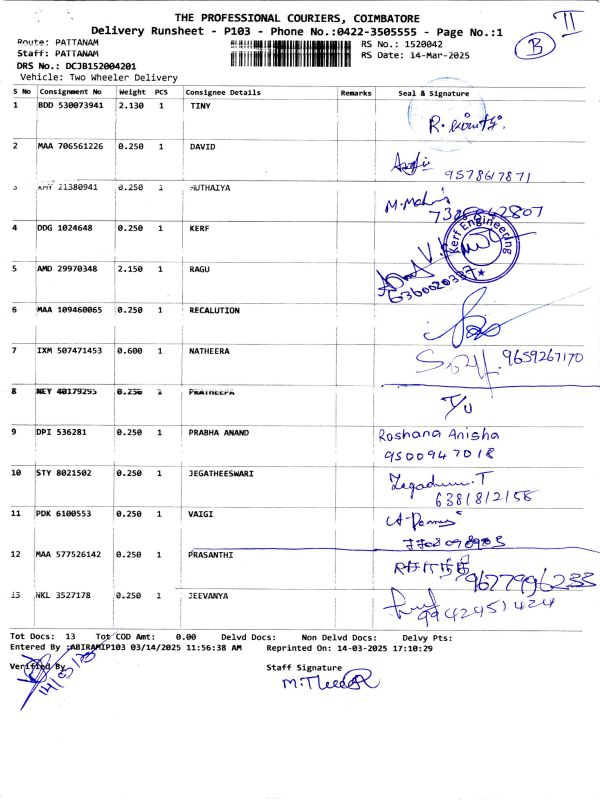 THE PROFESSIONAL COURIERS, COIMBATORE
Delivery Runsheet - P103 - Phone No.:0422-3505555 - Page No.:1
II
B
Route: PATTANAM RS No.: 1520042
Staff: PATTANAM RS Date: 14-Mar-2025
DRS No.: DCJB152004201
Vehicle: Two Wheeler Delivery
S No Consignment No Weight PCS Consignee Details Remarks Seal & Signature
1 BDD 530073941 2.130 1 TINY
2 MAA 706561226 0.250 1 DAVID
9578617871
3 KMT 21380941 0.250 1 MUTHAIYA
4 DDG 1024648 0.250 1 KERF
Kerf Engineering
5 AMD 29970348 2.150 1 RAGU
6360020387
6 MAA 109460065 0.250 1 RECALUTION
7 IXM 507471453 0.600 1 NATHEERA
9659267170
8 NEY 40179295 0.250 1 PRATHEEPA
T/U
9 DPI 536281 0.250 1 PRABHA ANAND
Roshana Anisha
9500947018
10 STY 8021502 0.250 1 JEGATHEESWARI
6381812156
11 PDK 6100553 0.250 1 VAIGI
12 MAA 577526142 0.250 1 PRASANTHI
9677996233
13 NKL 3527178 0.250 1 JEEVANYA
9942451424
Tot Docs: 13 Tot COD Amt: 0.00 Delvd Docs: Non Delvd Docs: Delvy Pts:
Entered By :ABIRAMIP103 03/14/2025 11:56:38 AM Reprinted On: 14-03-2025 17:10:29
Verified By Staff Signature
14/03/25